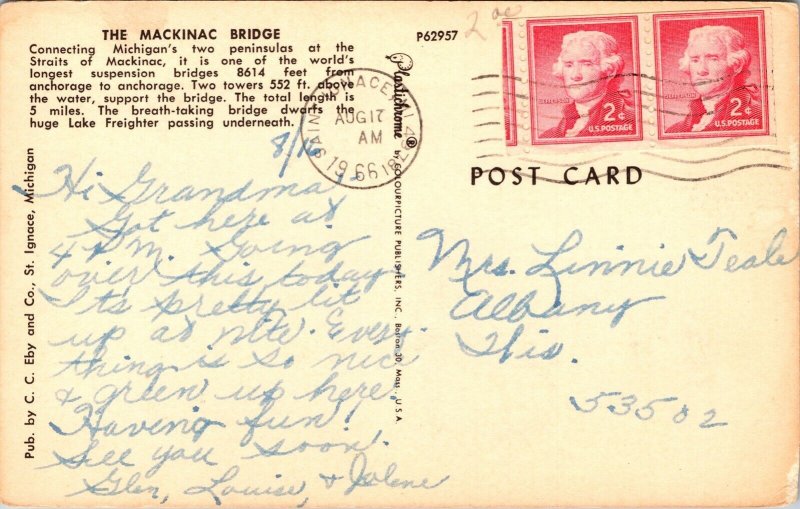 THE MACKINAC BRIDGE
Connecting Michigan's two peninsulas at the
Straits of Mackinac, it is one of the world's
longest suspension bridges 8614 feet from
anchorage to anchorage. Two towers 552 ft. above
the water, support the bridge. The total length is
5 miles. The breath-taking bridge dwarfs the
huge Lake Freighter passing underneath.
8/16
Hi Grandma
Got here at
4 P.M. Going
over this today.
Its pretty lit
up at nite. Every
thing is so nice
& green up here.
Having fun!
See you soon.
Glen, Louise, & Jolene
Pub. by C. C. Eby and Co., St. Ignace, Michigan
P62957
Plastichrome ® by COLOURPICTURE PUBLISHERS, INC. Boston 30, Mass., U.S.A
SAINT IGNACE, MI 49781
AUG 17
AM
1966
2
JEFFERSON
2¢
U.S. POSTAGE
JEFFERSON
2¢
U.S. POSTAGE
POST CARD
Mrs. Linnie Teale
Albany
Wis.
53502